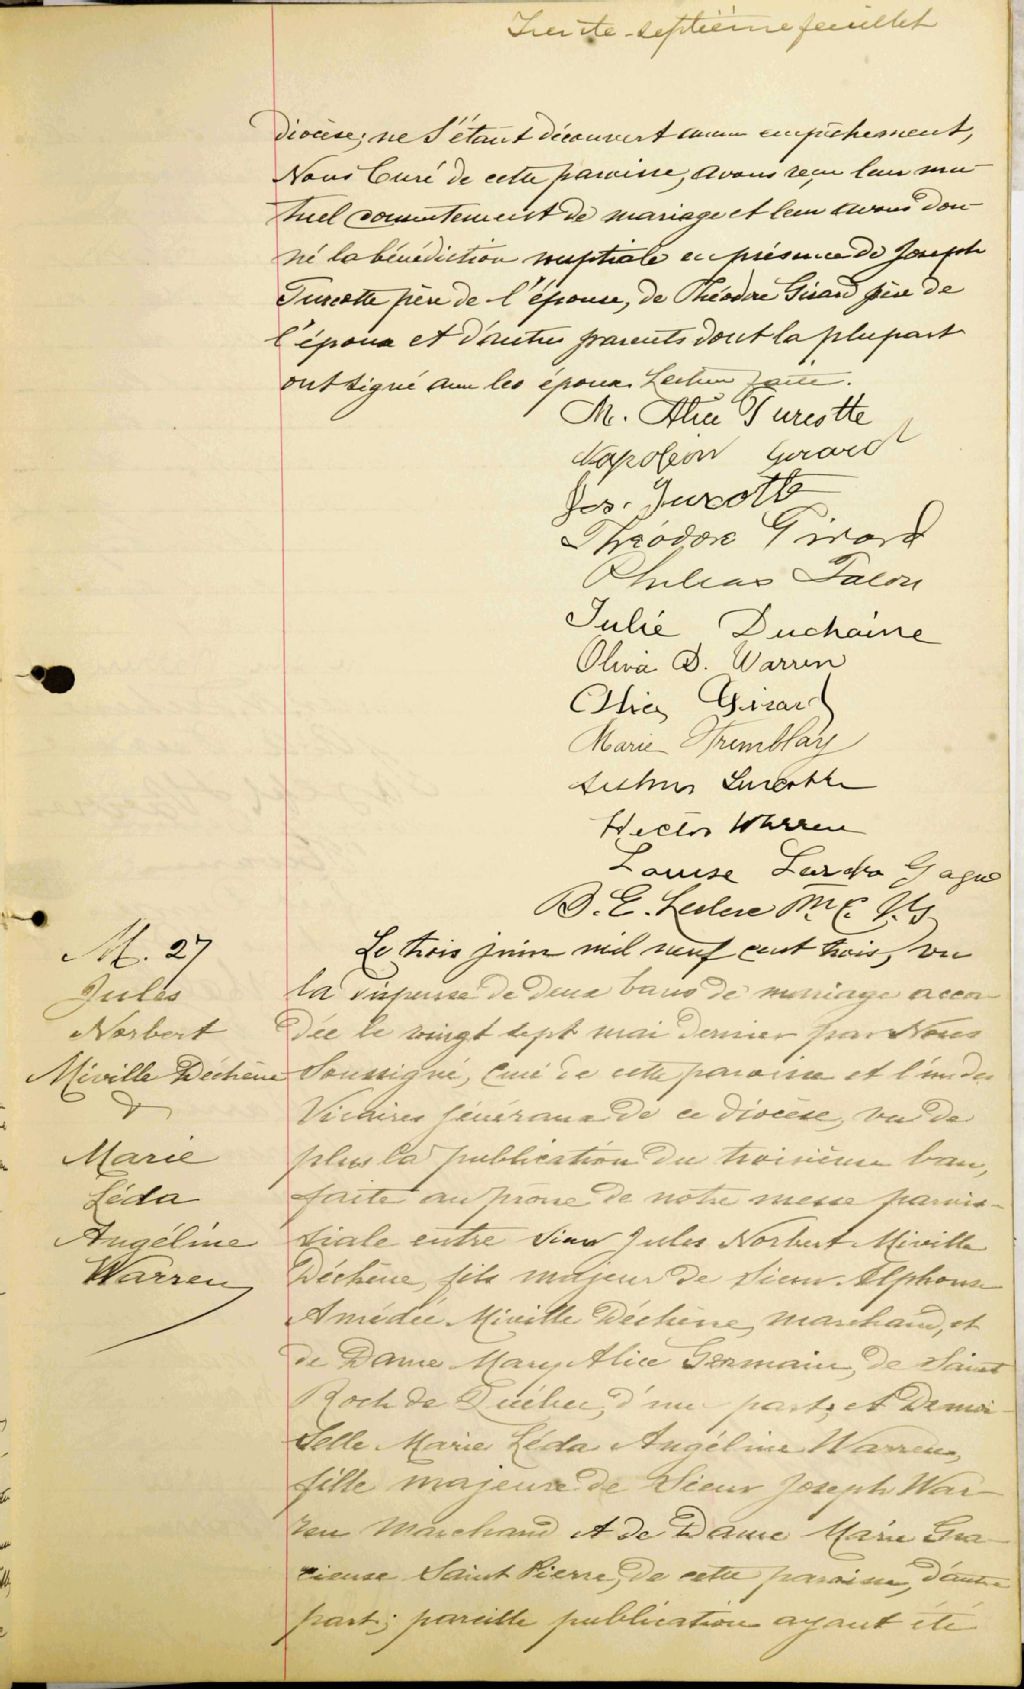 Trente-septième feuillet
diocèse; ne s'étant découvert aucun empêchement,
Nous Curé de cette paroisse, avons reçu leur mu-
tuel consentement de mariage et leur avons don-
né la bénédiction nuptiale en présence de Joseph
Turcotte père de l'épouse, de Théodore Girard père de
l'époux et d'autres parents dont la plupart
ont signé avec les époux. Lecture faite.
M. Alice Turcotte
Napoléon Girard
Jos. Turcotte
Théodore Girard
Philéas Talon
Julie Duchaine
Oliva D. Warren
Alice Girard
Marie Tremblay
Arthur Turcotte
Hector Warren
Louise Gagné
B. E. Leclerc Ptre C. V.G
M. 27
Jules
Norbert
Miville Déchène
&
Marie
Léda
Angéline
Warren
Le trois juin mil neuf cent trois, vu
la dispense de deux bans de mariage accor-
dée le vingt sept mai dernier par Nous
Soussigné, curé de cette paroisse et l'un des
Vicaires généraux de ce diocèse, vu de
plus la publication du troisième ban,
faite au prône de notre messe parois-
siale entre Sieur Jules Norbert Miville
Déchène, fils majeur de Sieur Alphonse
Amédée Miville Déchène, marchand, et
de Dame Mary Alice Germain, de Saint
Roch de Québec, d'une part; et Demoi-
selle Marie Léda Angéline Warren,
fille majeure de Sieur Joseph War-
ren Marchand et de Dame Marie Gra-
cieuse Saint Pierre, de cette paroisse, d'autre
part; pareille publication ayant été